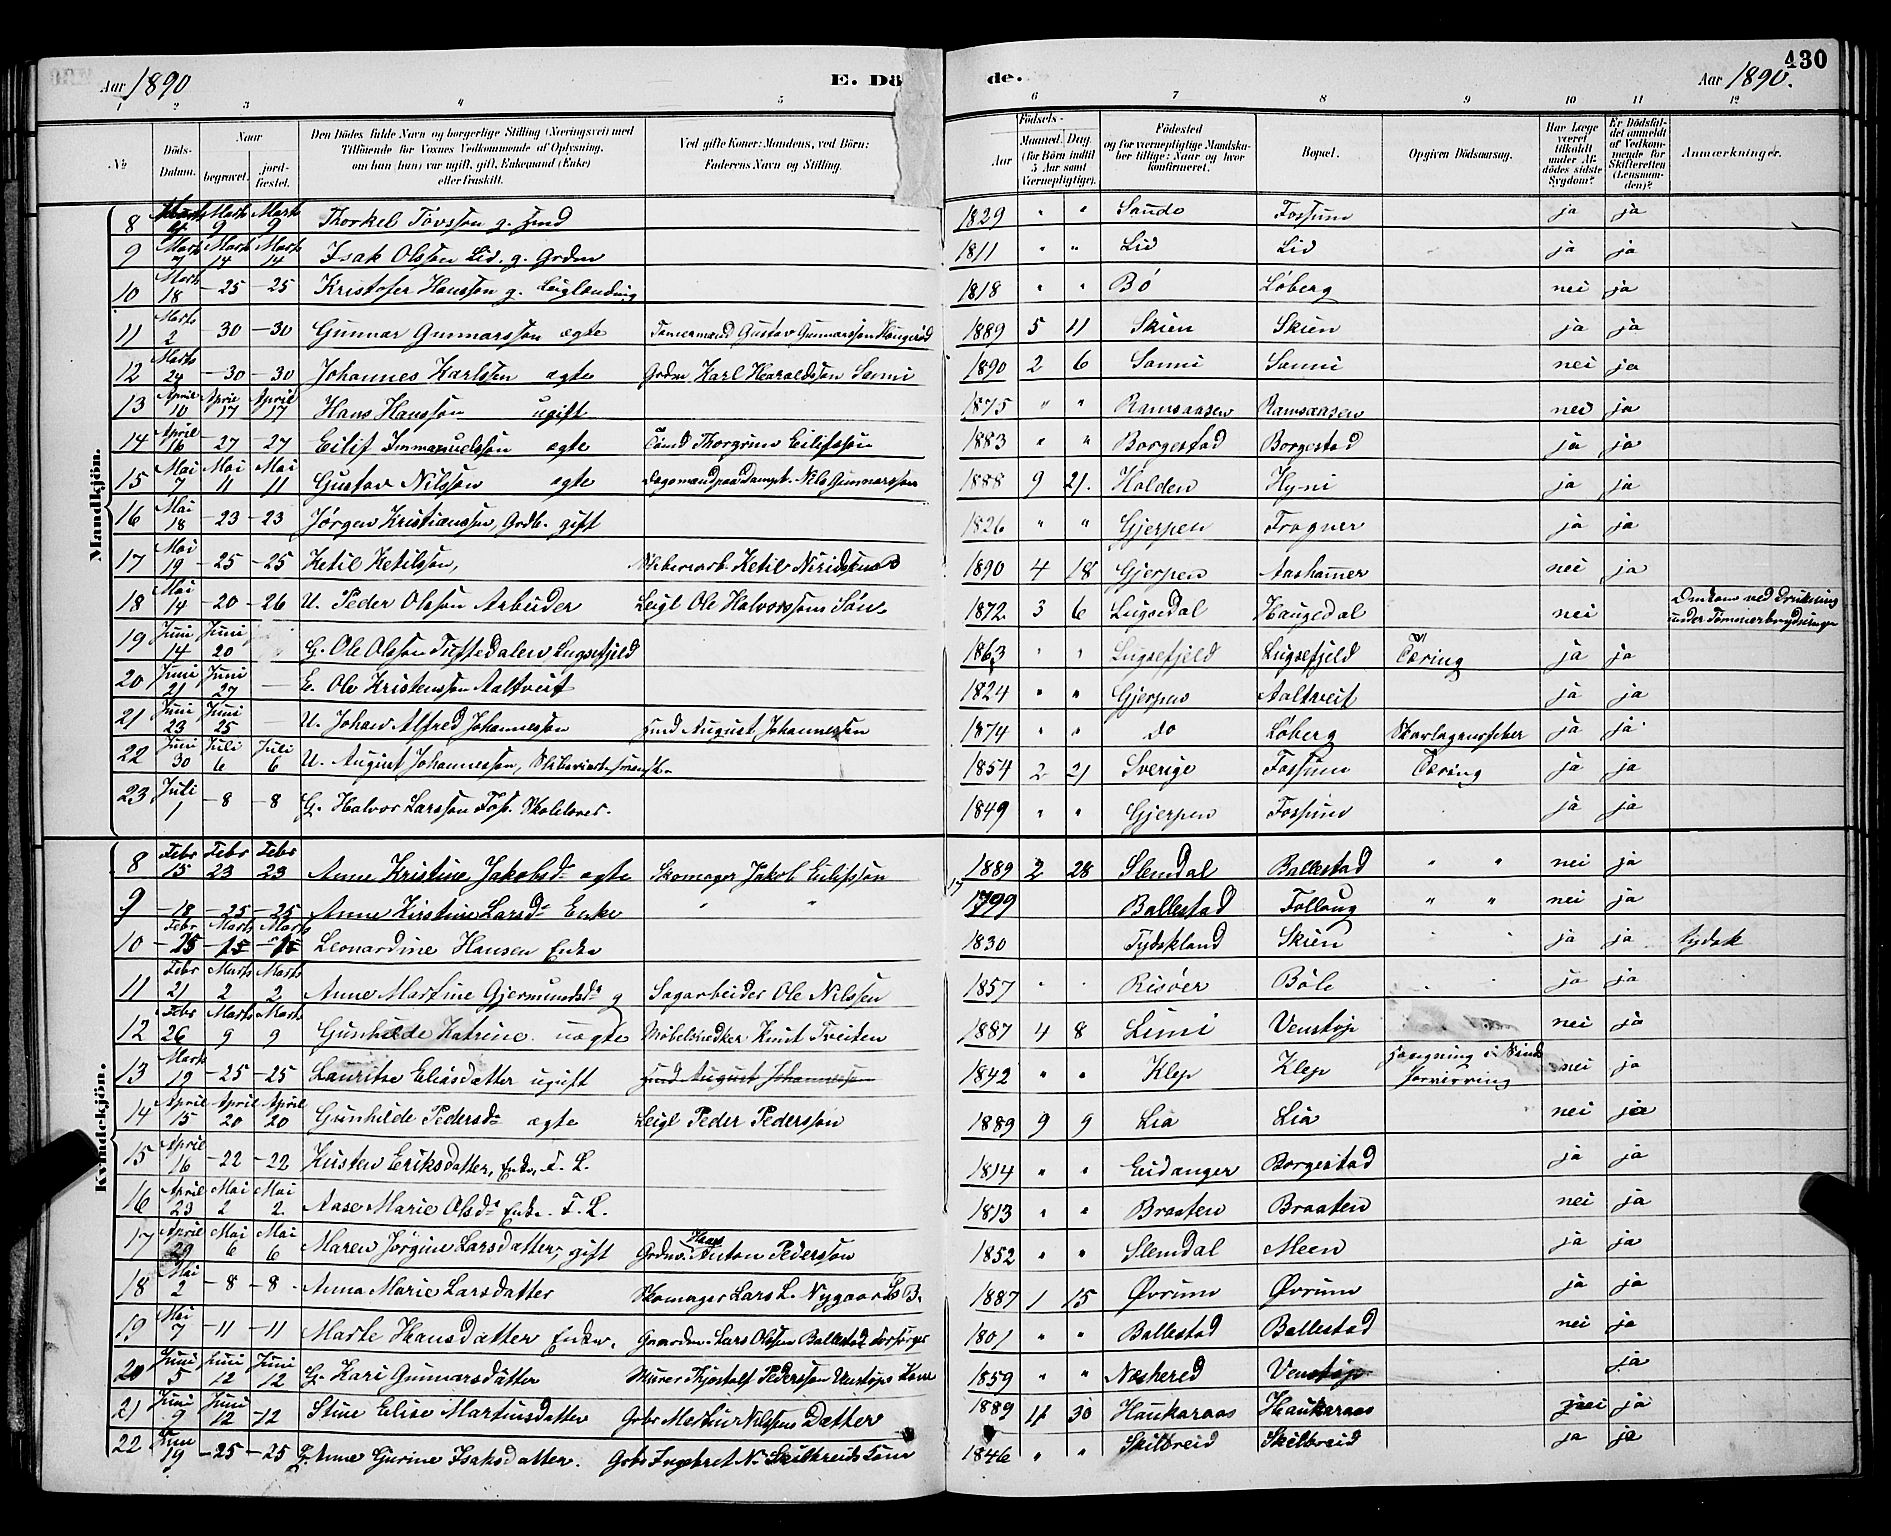 430
Aar 1890 E. Dö de. Aar 1890.
1 2 3 4 5 6 7 8 9 10 11 12
No Döds-Datum. Naar begravet. jord-fæstet. Den Dödes fulde Navn og borgerlige Stilling (Næringsvei) med Tilföiende for Voxnes Vedkommende af Oplysning, om han (hun) var ugift, gift, Enkemand (Enke) eller fraskilt. Ved gifte Koner: Mandens, ved Börn: Faderens Navn og Stilling. Födsels- Aar Maaned Dag (for Börn indtil 5 Aar samt Værnepligtige). Födested og for værnepligtige Mandskaber tillige: Naar og hvor konfirmeret. Bopæl. Opgiven Dödsaarsag. Har Læge været tilkaldt under Afdödes sidste Sygdom? Er Dödsfaldet anmeldt af Vedkommende for Skifteretten (Lensmanden)? Anmærkninger.
Mandkjön.
8 Marts 9 Marts 9 Thorkel Tovsson g. 1829 " " Saude Fossum ja ja
9 Marts 7 Marts 14 Marts 14 Isak Olsson Lid. g. Grdm 1811 " " Lid Lid ja ja
10 Marts 18 - 25 - 25 Kristofer Hansson g. Leiglænding 1818 " " Bö Löberg nei ja
11 Marts 2 - 30 - 30 Gunnar Gunnarsson ægte Tømermand Gustav Gunnarsson 1889 5 11 Skien Skien ja ja
12 Marts 24 - 30 - 30 Johannes Karlssen ægte Grdm Karl Haraldssen Sanni 1890 2 6 Sanni Sanni nei ja
13 April 10 April 17 April 17 Hans Hansson ugift 1875 " " Ramsaasen Ramsaasen nei ja
14 April 16 - 27 - 27 Eilif Immanuelssön ægte Thorgrim Eilifssön 1883 " " Borgestad Borgestad ja ja
15 Mai 7 Mai 11 Mai 11 Gustav Nilssön ægte Nils Gunnarssön 1888 9 21. Holden Hyni ja ja
16 Mai 18 - 23 - 23 Jørgen Kristianssen, Grdb. gift 1826 " " Gjerpen Frogner ja ja
17 Mai 19 - 25 - 25 Ketil Ketilssön, Ketil 1890 4 18 Gjerpen Aashamer nei ja
18 Mai 14 - 20 - 26 U. Peder Olsson Arbeider Leigl Ole Halvorssons Søn 1872 3 6 Lugsedal Haugedal nei Omkom ved Drukning under Tømmerbrydninger
19 Juni 14 Juni 20 G. Ole Olsson Tuftedalen Lugsefjeld 1863 " " Lugsefjeld Lugsefjeld Tæring ja ja
20 Juni 21 Juni 27 - E. Ole Kristenssön Aaltveit 1824 " " Gjerpen Aaltveit ja ja
21 Juni 23 Juni 25 - U. Johan Alfred Johannessön August Johannessön 1874 " " do Löberg Skarlagensfeber ja ja
22 Juni 30 Juli 6 Juli 6 U. August Johannesson, 1854 2 21 Sverige Fossum Tæring ja ja
23 Juli 1 - 8 - 8 G. Halvor Larsson Fos. Skolelærer. 1849 " " Gjerpen Fossum ja ja
Kvindekjön.
8 Febr 15 Febr 23 Febr 23 Anne Kristine Jakobsdr ægte Skomager Jakob Eilifssön 1889 2 28 Slemdal Ballestad " " nei ja
9 - 18 - 25 - 25 Anne Kirstine Larsdr Enke " " 1799 Ballestad Follaug " " nei ja
10 Febr - 25 Marts - 15 Marts - 15 Leonardine Hansen Enke 1830 Tydskland Skien " " ja ja tydsk
11 Febr 21 Marts 2 Marts 2 Anne Martine Gjermundsdr g Sagarbeider Ole Nilssen 1857 " " Risöer Böle " " ja ja
12 Febr 26 Marts 9 Marts 9 Gunhilde Katrine uægte Möbelsnedker Knut Tveiten 1887 4 8 Limi Venstöp nei ja
13 Marts 19 - 25 - 25 Lauritse Eliasdatter ugift August Johannessen 1842 " " Klep Klep nei ja
14 April 15 April 20 April 20 Gunhilde Pedersdr ægte Leigl Peder Pederssön 1889 9 9 Lia Lia nei ja
15 April 16 - 22 - 22 Kirsten Eriksdatter, Enke, F. L. 1814 " " Eidanger Borgestad ja ja
16 April 23 Mai 2 Mai 2 Aase Marie Olsdr Enke. F. L. 1813 " " Braaten Braaten nei ja
17 April 29 Mai 6 Mai 6 Maren Jörgine Larsdatter, gift Grdm. Hans Anton Pederssön 1852 " " Slemdal Meen ja ja
18 Mai 2 - 8 - 8 Anna Marie Larsdatter Skomager Lars L. Nygaard 1887 1 15 Øvrum Øvrum ja ja
19 Mai 7 - 11 - 11 Marte Hansdatter Enke. Gaardm. Lars Olssen Ballestad forsörger 1801 " " Ballestad Ballestad nei ja
20 Juni 5 Juni 12 Juni 12 G. Kari Gunnarsdatter Murer Kjøstolf Pederssön Venstöps Kone 1859 " " Næshered Venstöp ja
21 Juni 9 Juni 12 - 12 Stine Elise Martinsdatter Grbr Martin Nilssens Datter 1889 4 30 Haukaraas Haukaraas nei ja
22 Juni 19 - 25 - 25 G. Anne Gurine Isaksdatter. Grbr Ingebret N. Skilbreids Kone 1846 " " Skilbreid Skilbreid ja ja